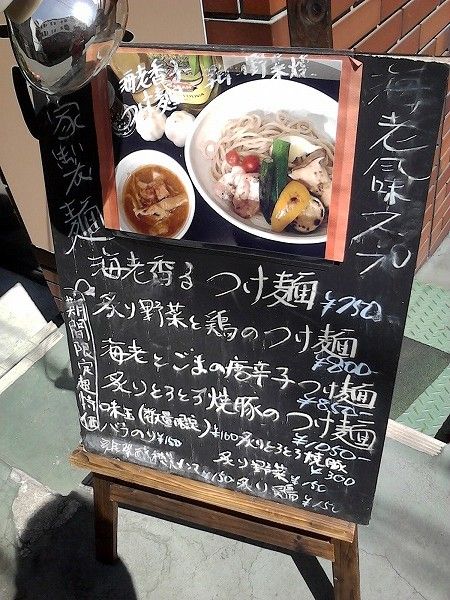 海老風味スープ
自家製麺
海老香る
つけ麺
海老香る つけ麺 ¥750-
炙り野菜と鶏のつけ麺 ¥800-
海老とごまの唐辛子つけ麺 ¥850-
炙りとろとろ焼豚のつけ麺 ¥1050-
期間限定
味玉(数量限定)¥100
炙りとろとろ焼豚 ¥300
バラのり¥150
炙り野菜 ¥150
¥150
炙り鶏 ¥150